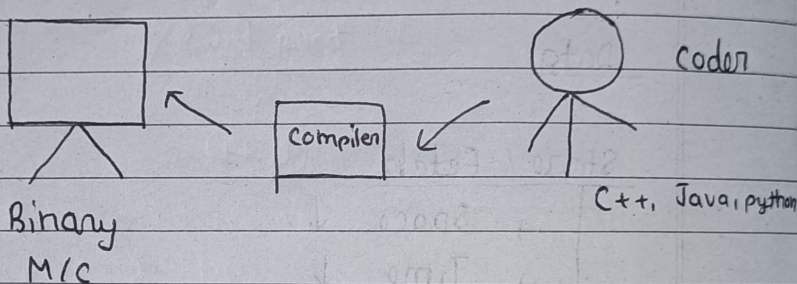 Coder
Compiler
C++, Java, python
Binary
M/C